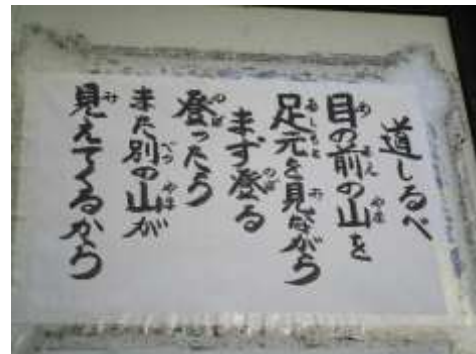 道しるべ
目の前の山を
足元を見ながら
まず登る
登ったら
また別の山が
見えてくるから